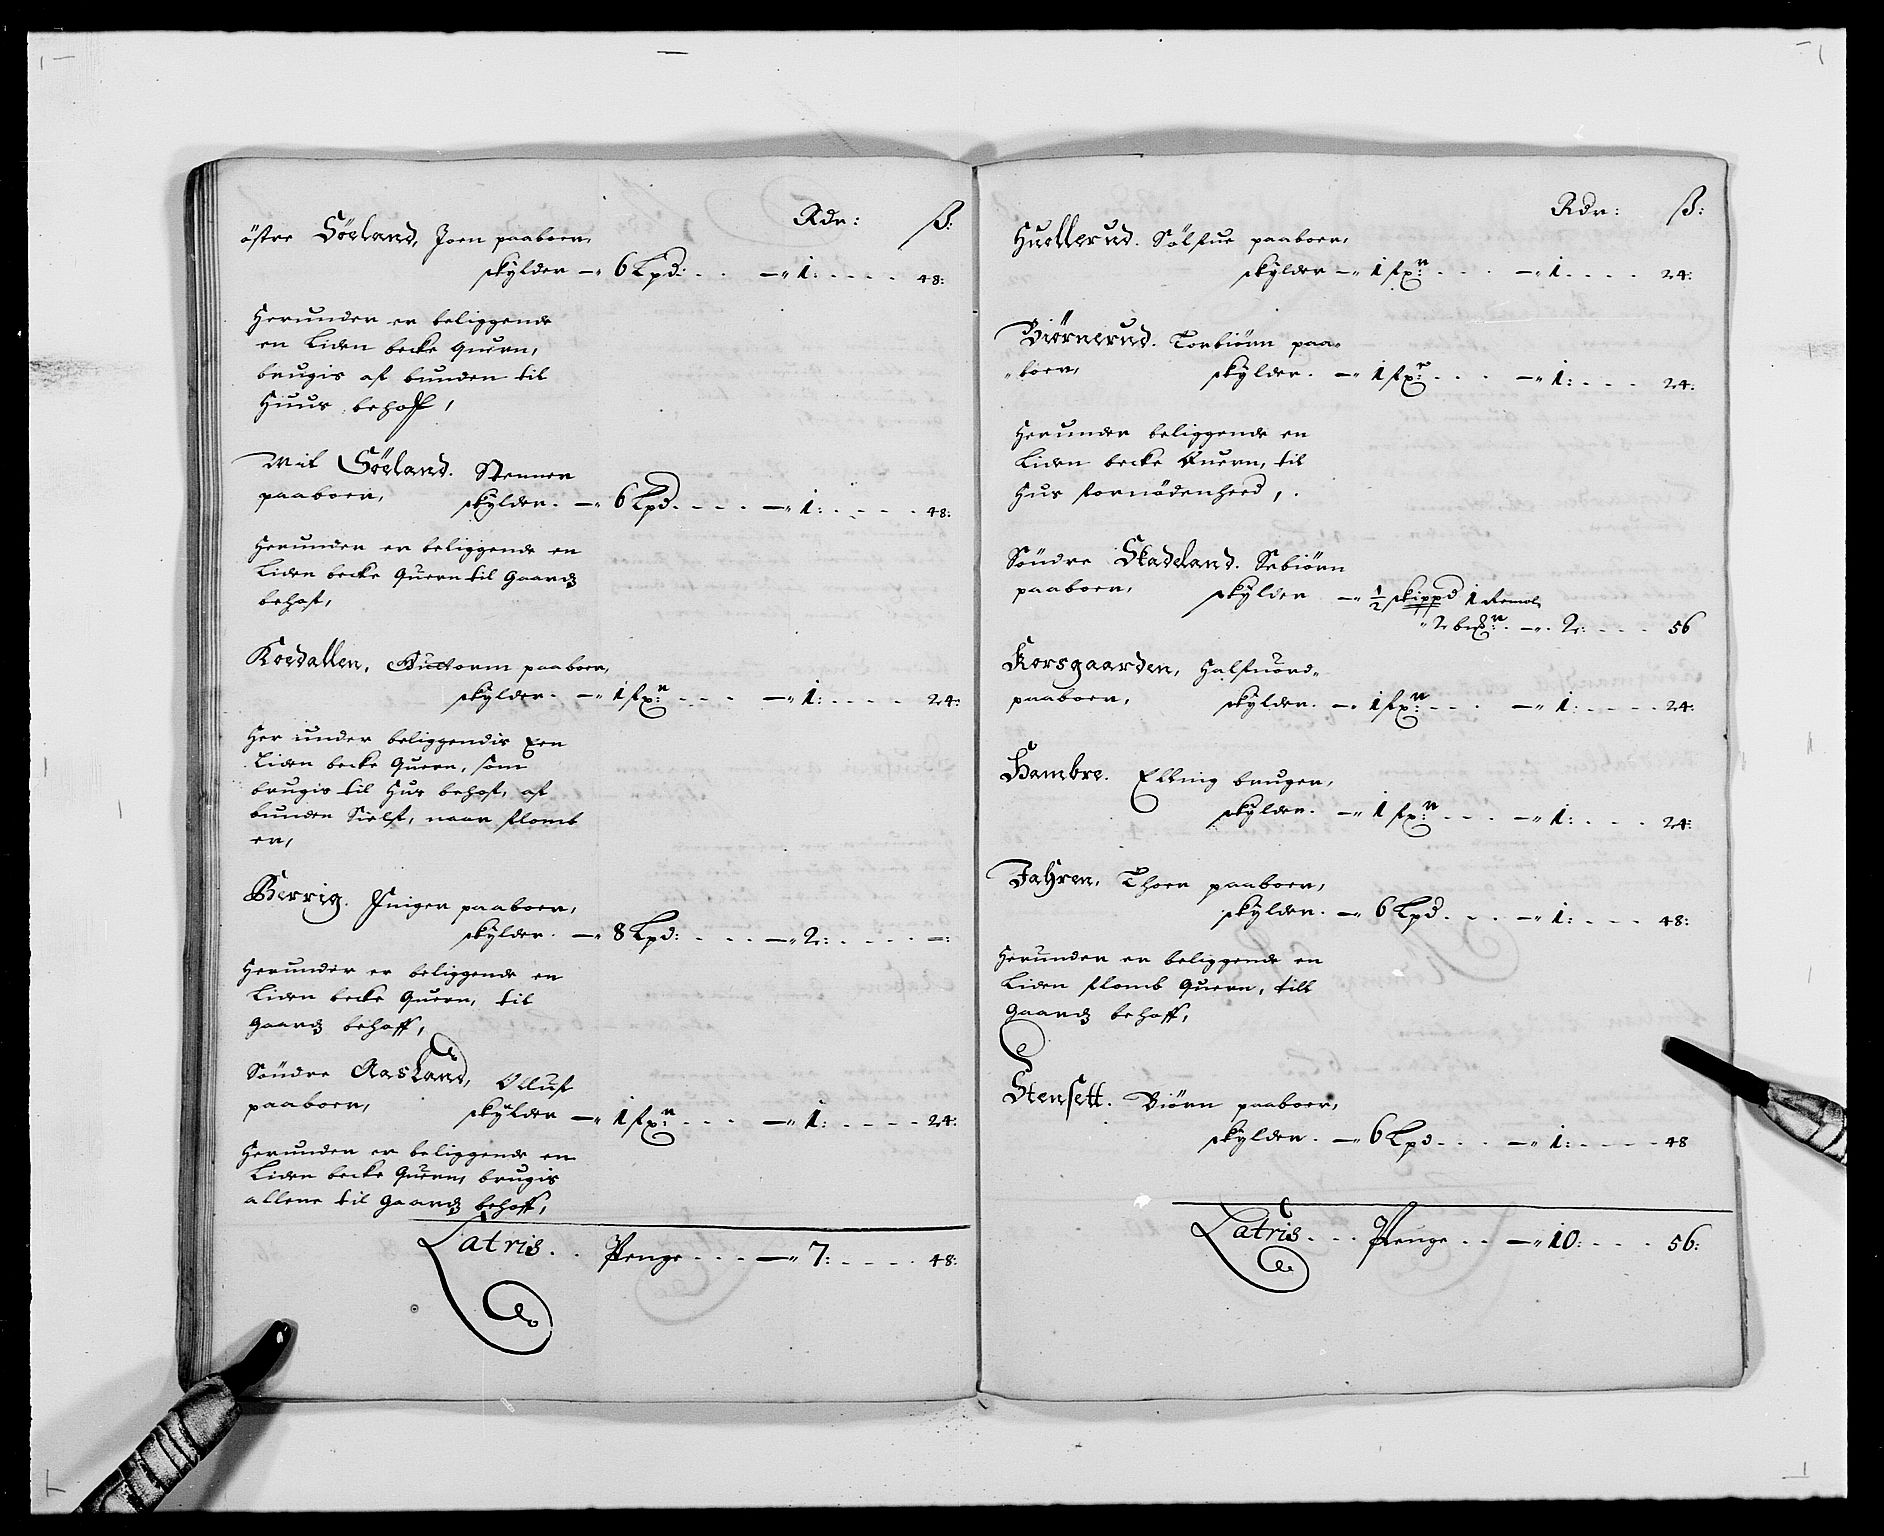 Rdr: ß:
östre Söeland, Joen paaboer,
skylder — 6 Lpd: . . — 1: . . . . 48:
Herunder er beliggende
en Liden becke Quern,
brugis af bunden til
Huus behoff,
Mit Söeland. Stenner
paaboer, skylder. — 6 Lpd. . . . — 1: . . . . 48:
Herunder er beliggende en
Liden becke Quern til Gaardz
behof,
Koedallen, Guttorm paaboer,
skylder. — 1 fxr: . . . — 1: . . . . 24:
Her under beliggendis Een
Liden becke Quern, som
brugis til Hus behof, af
bunden Sielf, naar flomb
er,
Berrig. Iniger paaboer,
skylder. — 8 Lpd: . . . — 2: . . . . —:
Herunder er beliggende en
Liden becke Quern, til
Gaardz behoff,
Söndre Aasland, Olluf
paaboer, skylder — 1 fxr: . . . — 1: . . . . 24:
Herunder er beliggende en
Liden becke Quern, brugis
allene til Gaardz behoff,
Latris. . Penge . . . — 7: . . . . 48:
Rdr: ß:
Huellerud. Sölfue paaboer,
skylder — 1 fxr: . . . — 1. . . . 24:
Biörnerud. Torbiörn paa-
boer, skylder. — 1 fxr: . . . — 1: . . . 24:
Herunder beliggende en
Liden becke Quern, til
Hus fornödenheed,
Söndre Skadeland. Sebiörn
paaboer, skylder — ½ skippd 1 Remol
2 bexr: . — 2: . . . 56
Korsgaarden, Halfuord
paaboer, skylder. — 1 fxr: . . . — 1: . . . . 24:
Hambre. Elling bruger,
skylder. — 1 fxr: . . . — 1: . . . 24:
Jahren, Thoer paaboer,
skylder. — 6 Lpd. . . . — 1: . . . 48:
Herunder er beliggende en
Liden flomb Quern, till
Gaardz behoff,
Stensett. Biörn paaboer,
skylder. — 6 Lpd. . . . — 1: . . . . 48
Latris. . . Penge . . — 10: . . . 56: